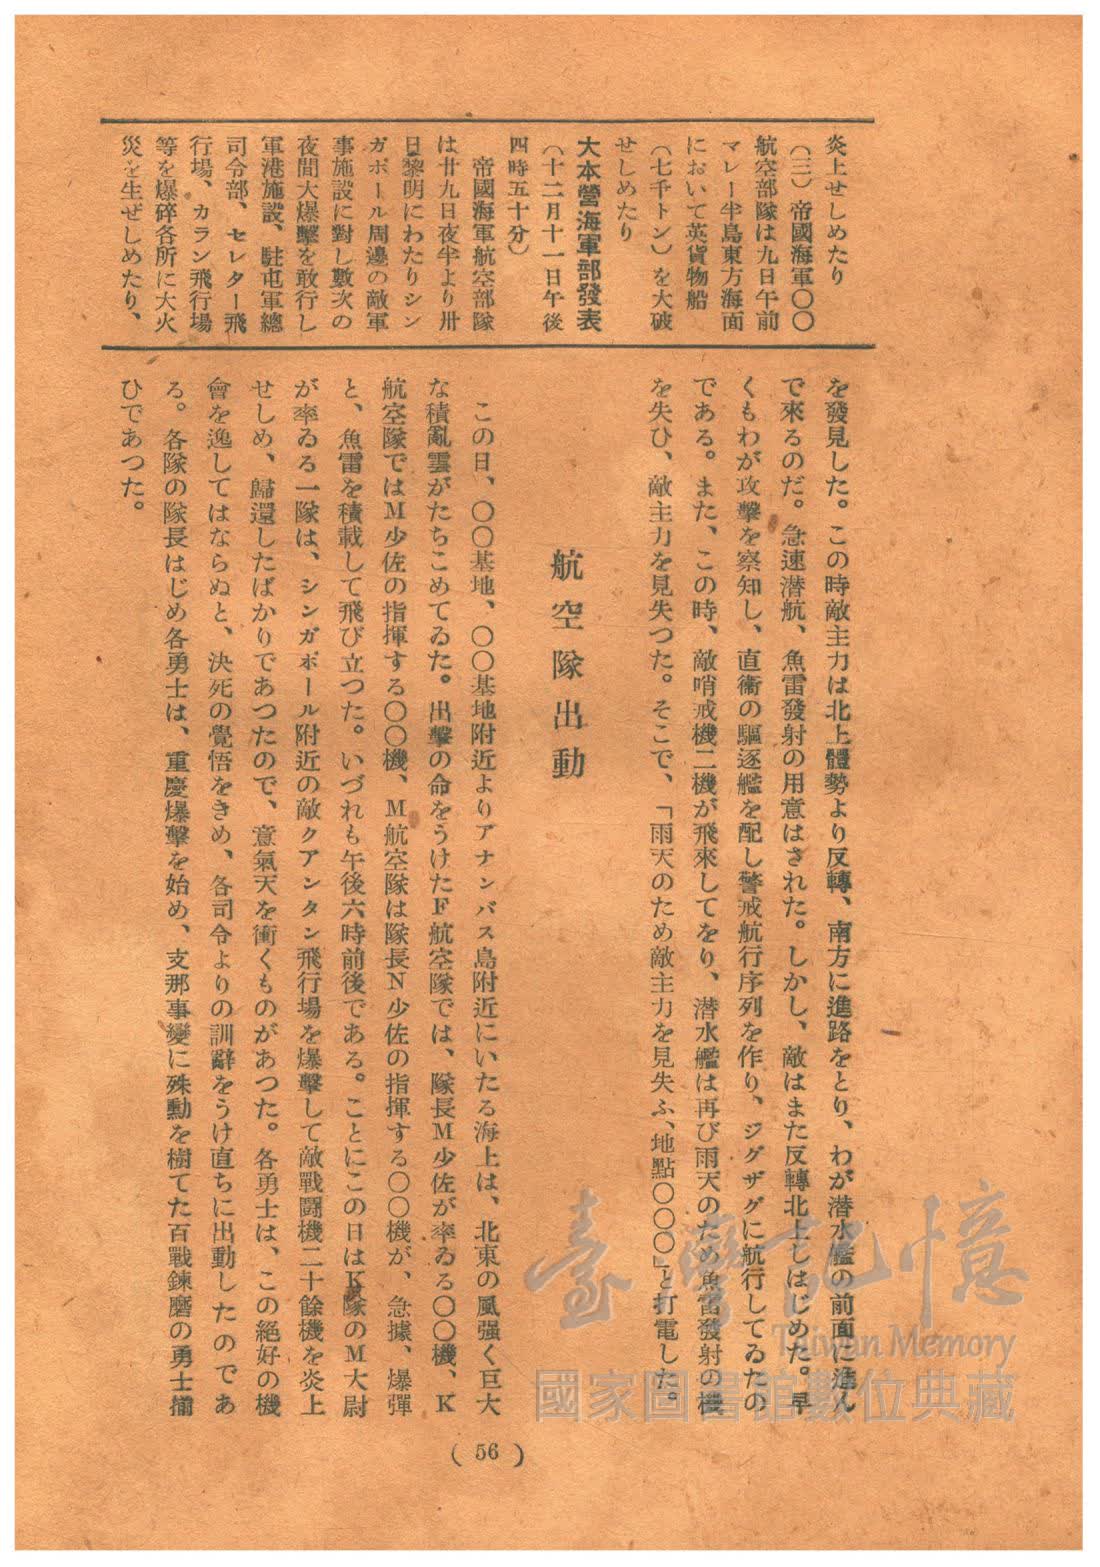 炎上せしめたり
（三）帝國海軍〇〇
航空部隊は九日午前
マレー半島東方海面
において英貨物船
（七千トン）を大破
せしめたり
大本營海軍部發表
（十二月十一日午後
四時五十分）
帝國海軍航空部隊
は廿九日夜半より卅
日黎明にわたりシン
ガポール周邊の敵軍
事施設に對し數次の
夜間大爆擊を敢行し
軍港施設、駐屯軍總
司令部、セレター飛
行場、カラン飛行場
等を爆碎各所に大火
災を生ぜしめたり、
を發見した。この時敵主力は北上體勢より反轉、南方に進路をとり、わが潜水艦の前面に進ん
で來るのだ。急速潜航、魚雷發射の用意はされた。しかし、敵はまた反轉北上しはじめた。早
くもわが攻擊を察知し、直衞の驅逐艦を配し警戒航行序列を作り、ジグザグに航行してゐたの
である。また、この時、敵哨戒機二機が飛來してをり、潜水艦は再び雨天のため魚雷發射の機
を失ひ、敵主力を見失つた。そこで、「雨天のため敵主力を見失ふ、地點〇〇〇」と打電した。
航空隊出動
この日、〇〇基地、〇〇基地附近よりアナンバス島附近にいたる海上は、北東の風强く巨大
な積亂雲がたちこめてゐた。出擊の命をうけたＦ航空隊では、隊長Ｍ少佐が率ゐる〇〇機、Ｋ
航空隊ではＭ少佐の指揮する〇〇機、Ｍ航空隊は隊長Ｎ少佐の指揮する〇〇機が、急據、爆彈
と、魚雷を積載して飛び立つた。いづれも午後六時前後である。ことにこの日はＫ隊のＭ大尉
が率ゐる一隊は、シンガポール附近の敵クアンタン飛行場を爆擊して敵戰鬪機二十餘機を炎上
せしめ、歸還したばかりであつたので、意氣天を衝くものがあつた。各勇士は、この絕好の機
會を逸してはならぬと、決死の覺悟をきめ、各司令よりの訓辭をうけ直ちに出動したのであ
る。各隊の隊長はじめ各勇士は、重慶爆擊を始め、支那事變に殊勳を樹てた百戰鍊磨の勇士揃
ひであつた。
( 56 )
臺灣記憶
Taiwan Memory
國家圖書館數位典藏